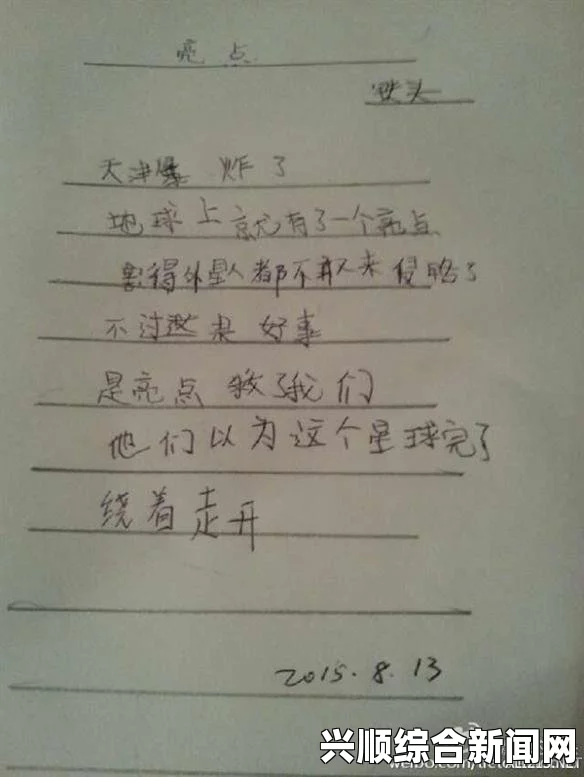 亮点
铁头
天津爆炸了
地球上就有了一个亮点
害得外星人都不敢来侵略了
不过这是好事
是亮点救了我们
他们以为这个星球完了
绕着走开
2015.8.13
兴顺综合新闻网